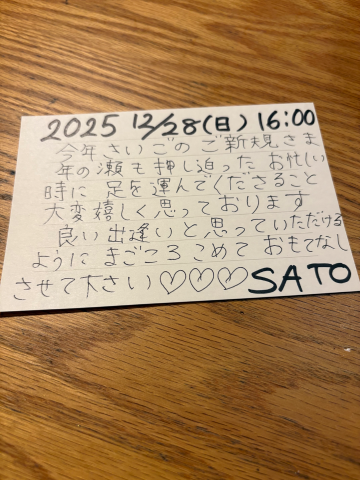 2025 12/28(日) 16:00
今年さいごのご新規さま
年の瀬も押し迫ったお忙しい
時に足を運んでくださること
大変嬉しく思っております
良い出逢いと思っていただける
ようにまごころこめておもてなし
させて下さい♡♡♡SATO